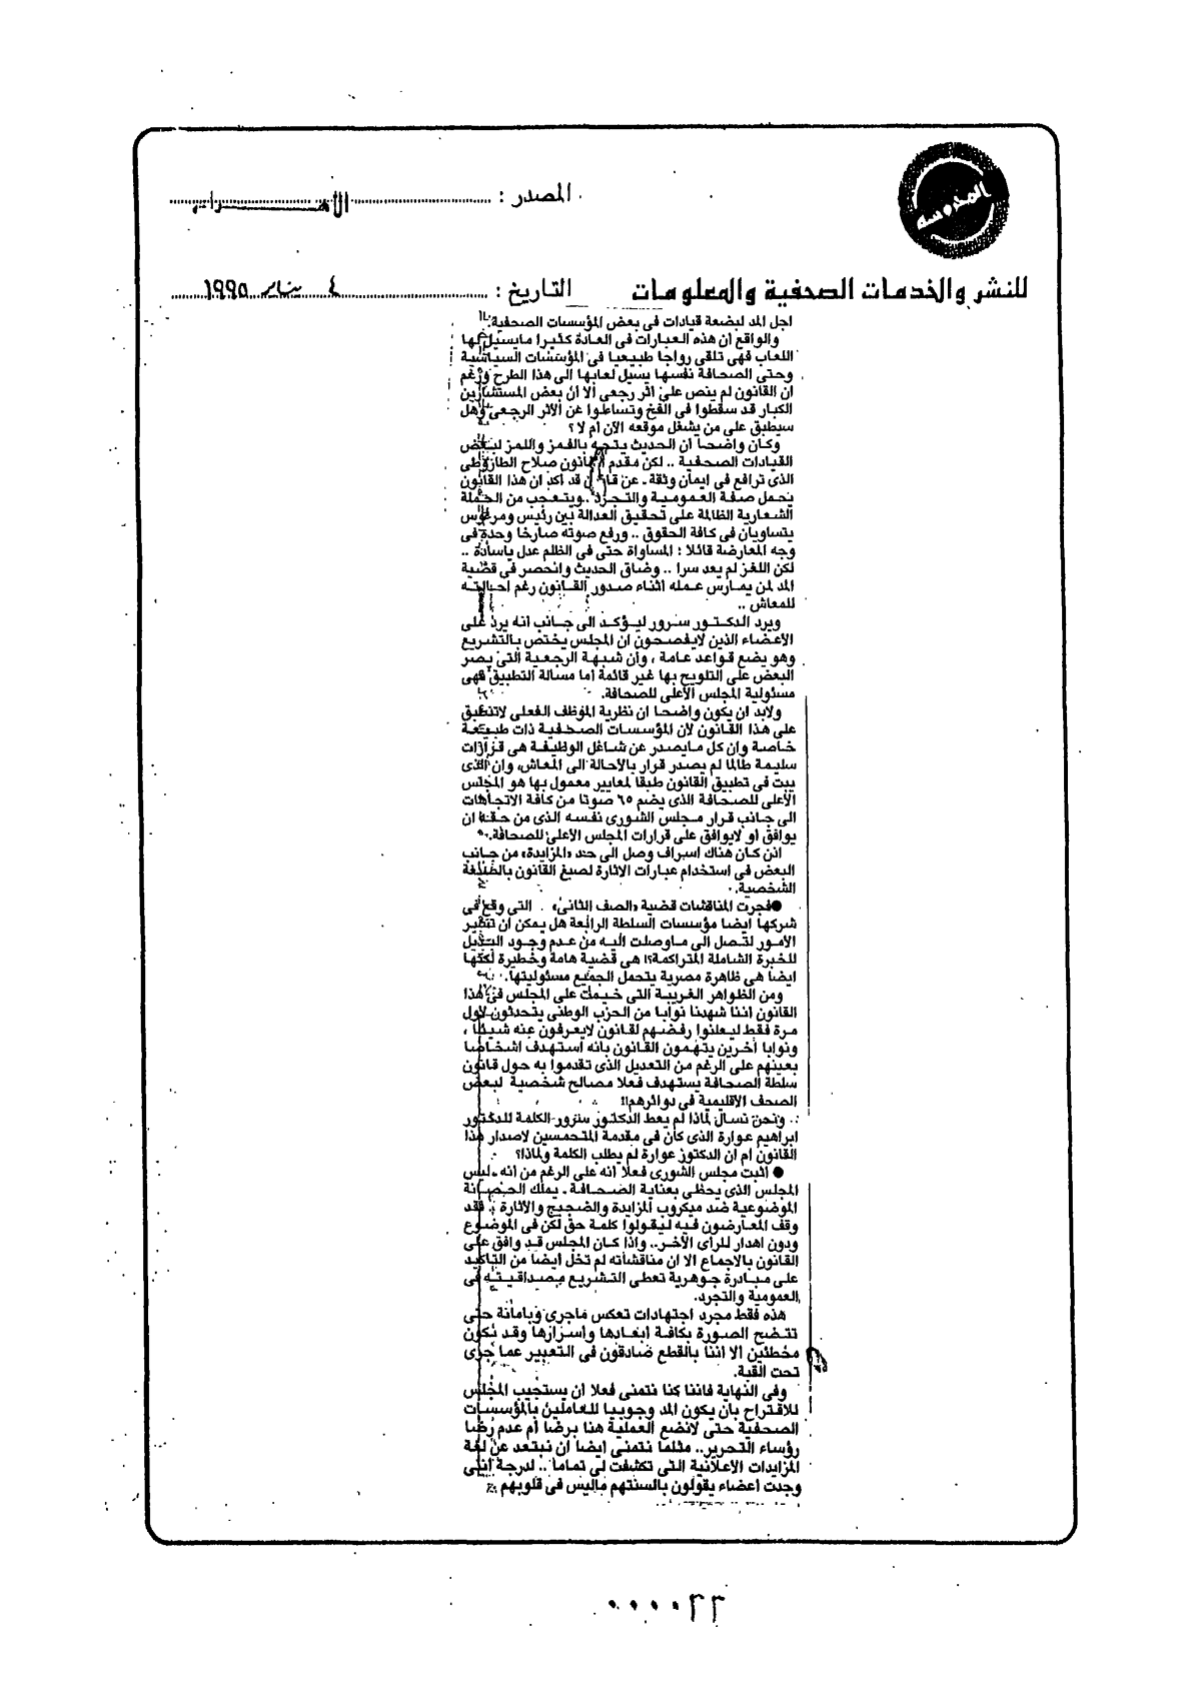 المدروسه
المصدر : الأهـــرام
للنشر والخدمات الصحفية والمعلومات
التاريخ : ٤ يناير ١٩٩٥
اجل المد لبضعة قيادات فى بعض المؤسسات الصحفية.
والواقع ان هذه العبارات فى العادة كثيرا مايسيل لها
اللعاب فهى تلقى رواجا طبيعيا فى المؤسسات السياسية
وحتى الصحافة نفسها يسيل لعابها الى هذا الطرح ورغم
ان القانون لم ينص على اثر رجعى الا ان بعض المستشارين
الكبار قد سقطوا فى الفخ وتساءلوا عن الاثر الرجعى وهل
سيطبق على من يشغل موقعه الآن أم لا ؟
وكان واضحا ان الحديث يتجه بالغمز واللمز لبعض
القيادات الصحفية .. لكن مقدم القانون صلاح الطاروطى
الذى ترافع فى ايمان وثقة ـ عن قانون قد اكد ان هذا القانون
يحمل صفة العمومية والتجرد ..ويتعجب من الحملة
الشعارية الظالمة على تحقيق العدالة بين رئيس ومرءوس
يتساويان فى كافة الحقوق .. ورفع صوته صارخا وحده فى
وجه المعارضة قائلا : المساواة حتى فى الظلم عدل ياسادة ..
لكن اللغز لم يعد سرا .. وضاق الحديث وانحصر فى قضية
المد لمن يمارس عمله اثناء صدور القانون رغم احالته
للمعاش ..
ويرد الدكتور سرور ليؤكد الى جانب انه يرد على
الاعضاء الذين لايفصحون ان المجلس يختص بالتشريع
وهو يضع قواعد عامة ، وان شبهة الرجعية التى يصر
البعض على التلويح بها غير قائمة اما مسالة التطبيق فهى
مسئولية المجلس الاعلى للصحافة.
ولابد ان يكون واضحا ان نظرية الموظف الفعلى لاتنطبق
على هذا القانون لأن المؤسسات الصحفية ذات طبيعة
خاصة وان كل مايصدر عن شاغل الوظيفة هى قرارات
سليمة طالما لم يصدر قرار بالاحالة الى المعاش، وان الذى
يبت فى تطبيق القانون طبقا لمعايير معمول بها هو المجلس
الأعلى للصحافة الذى يضم ٦٥ صوتا من كافة الاتجاهات
الى جانب قرار مجلس الشورى نفسه الذى من حقه ان
يوافق أو لايوافق على قرارات المجلس الأعلى للصحافة.
اذن كان هناك اسراف وصل الى حد «المزايدة» من جانب
البعض فى استخدام عبارات الاثارة لصبغ القانون بالمنفعة
الشخصية.
●فجرت المناقشات قضية «الصف الثانى» . التى وقع فى
شركها ايضا مؤسسات السلطة الرابعة هل يمكن ان تتغير
الأمور لتصل الى ماوصلت اليه من عدم وجود البديل
للخبرة الشاملة المتراكمة؟! هى قضية هامة وخطيرة لكنها
ايضا هى ظاهرة مصرية يتحمل الجميع مسئوليتها.
ومن الظواهر الغريبة التى خيمت على المجلس فى هذا
القانون اننا شهدنا نوابا من الحزب الوطنى يتحدثون لاول
مرة فقط ليعلنوا رفضهم لقانون لايعرفون عنه شيئا ،
ونوابا آخرين يتهمون القانون بانه استهدف اشخاصا
بعينهم على الرغم من التعديل الذى تقدموا به حول قانون
سلطة الصحافة يستهدف فعلا مصالح شخصية لبعض
الصحف الاقليمية فى دوائرهم!!
ونحن نسأل لماذا لم يعط الدكتور سرور الكلمة للدكتور
ابراهيم عوارة الذى كان فى مقدمة المتحمسين لاصدار هذا
القانون ام ان الدكتور عوارة لم يطلب الكلمة ولماذا؟
● اثبت مجلس الشورى فعلا انه على الرغم من انه ـ ليس
المجلس الذى يحظى بعناية الصحافة ـ يملك الحصانة
الموضوعية ضد ميكروب المزايدة والضجيج والاثارة . فقد
وقف المعارضون فيه ليقولوا كلمة حق لكن فى الموضوع
ودون اهدار للرأى الآخر.. واذا كان المجلس قد وافق على
القانون بالاجماع الا ان مناقشاته لم تخل أيضا من التأكيد
على مبادرة جوهرية تعطى التشريع مصداقيته فى
العمومية والتجرد.
هذه فقط مجرد اجتهادات تعكس ماجرى وبامانة حتى
تتضح الصورة بكافة ابعادها وأسرارها وقد نكون
مخطئين الا اننا بالقطع صادقون فى التعبير عما جرى
تحت القبة.
وفى النهاية فاننا كنا نتمنى فعلا ان يستجيب المجلس
للاقتراح بان يكون المد وجوبيا للعاملين بالمؤسسات
الصحفية حتى لانضع العملية هنا برضا أم عدم رضا
رؤساء التحرير.. مثلما نتمنى ايضا ان نبتعد عن لغة
المزايدات الاعلانية التى تكشفت لى تماما .. لدرجة اننى
وجدت اعضاء يقولون بالسنتهم ماليس فى قلوبهم
٠٠٠٠٢٢